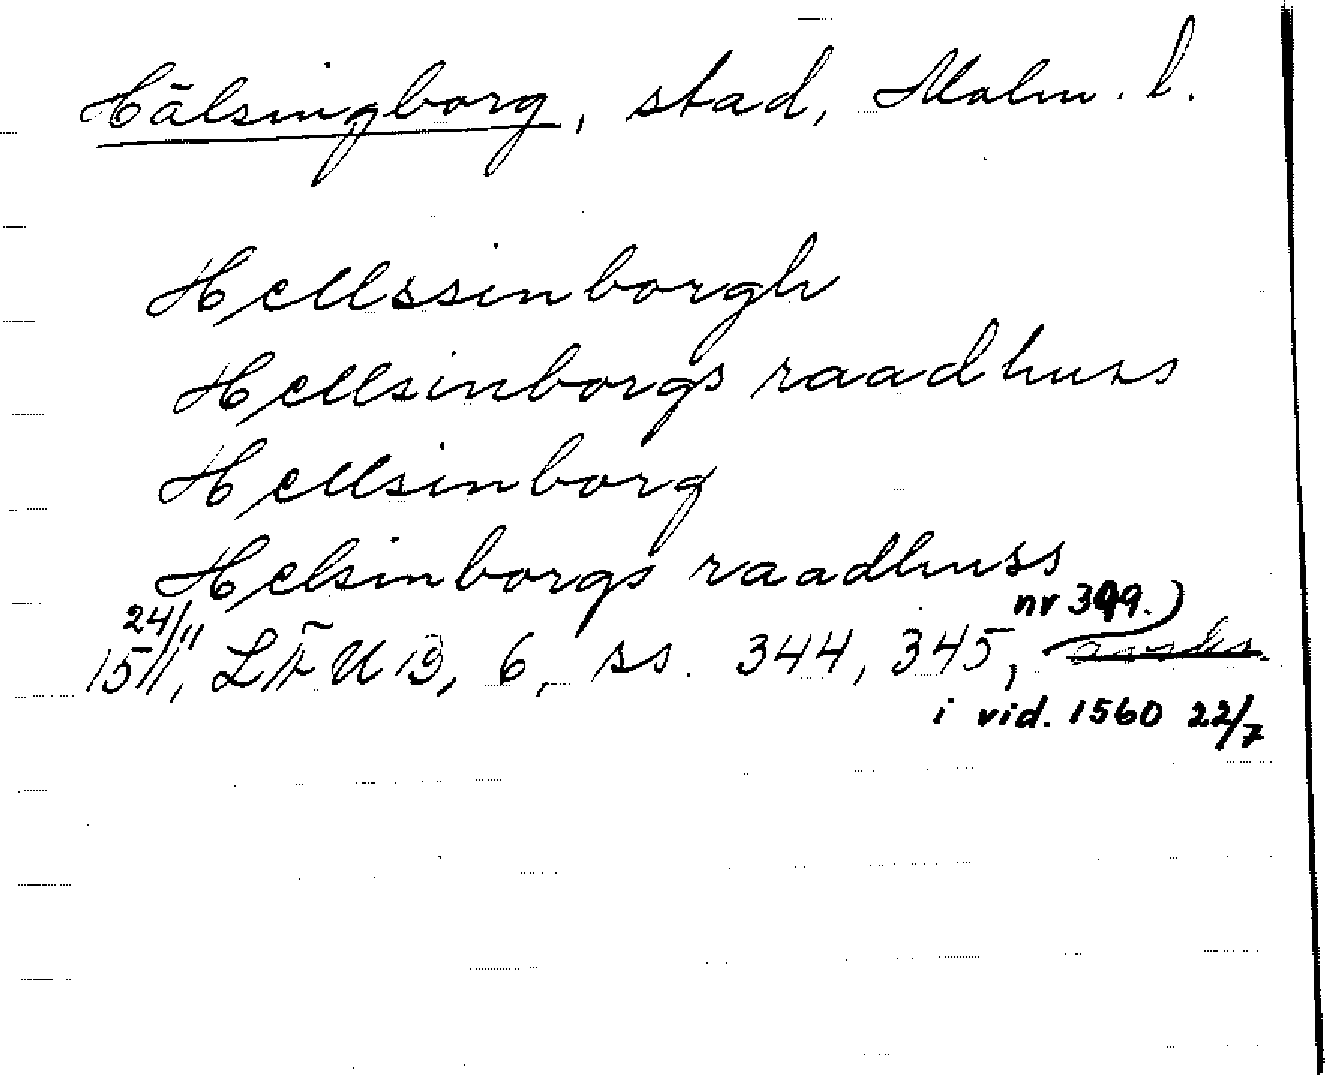 Hälsingborg, stad, Malm. l.
Hellssinborgh
Hellsinborgs raadhuss
Hellsinborg
Helsinborgs raadhuss
24/11 nr 399.)
1511, LÄU B, 6, ss. 344, 345,
i vid. 1560 22/7